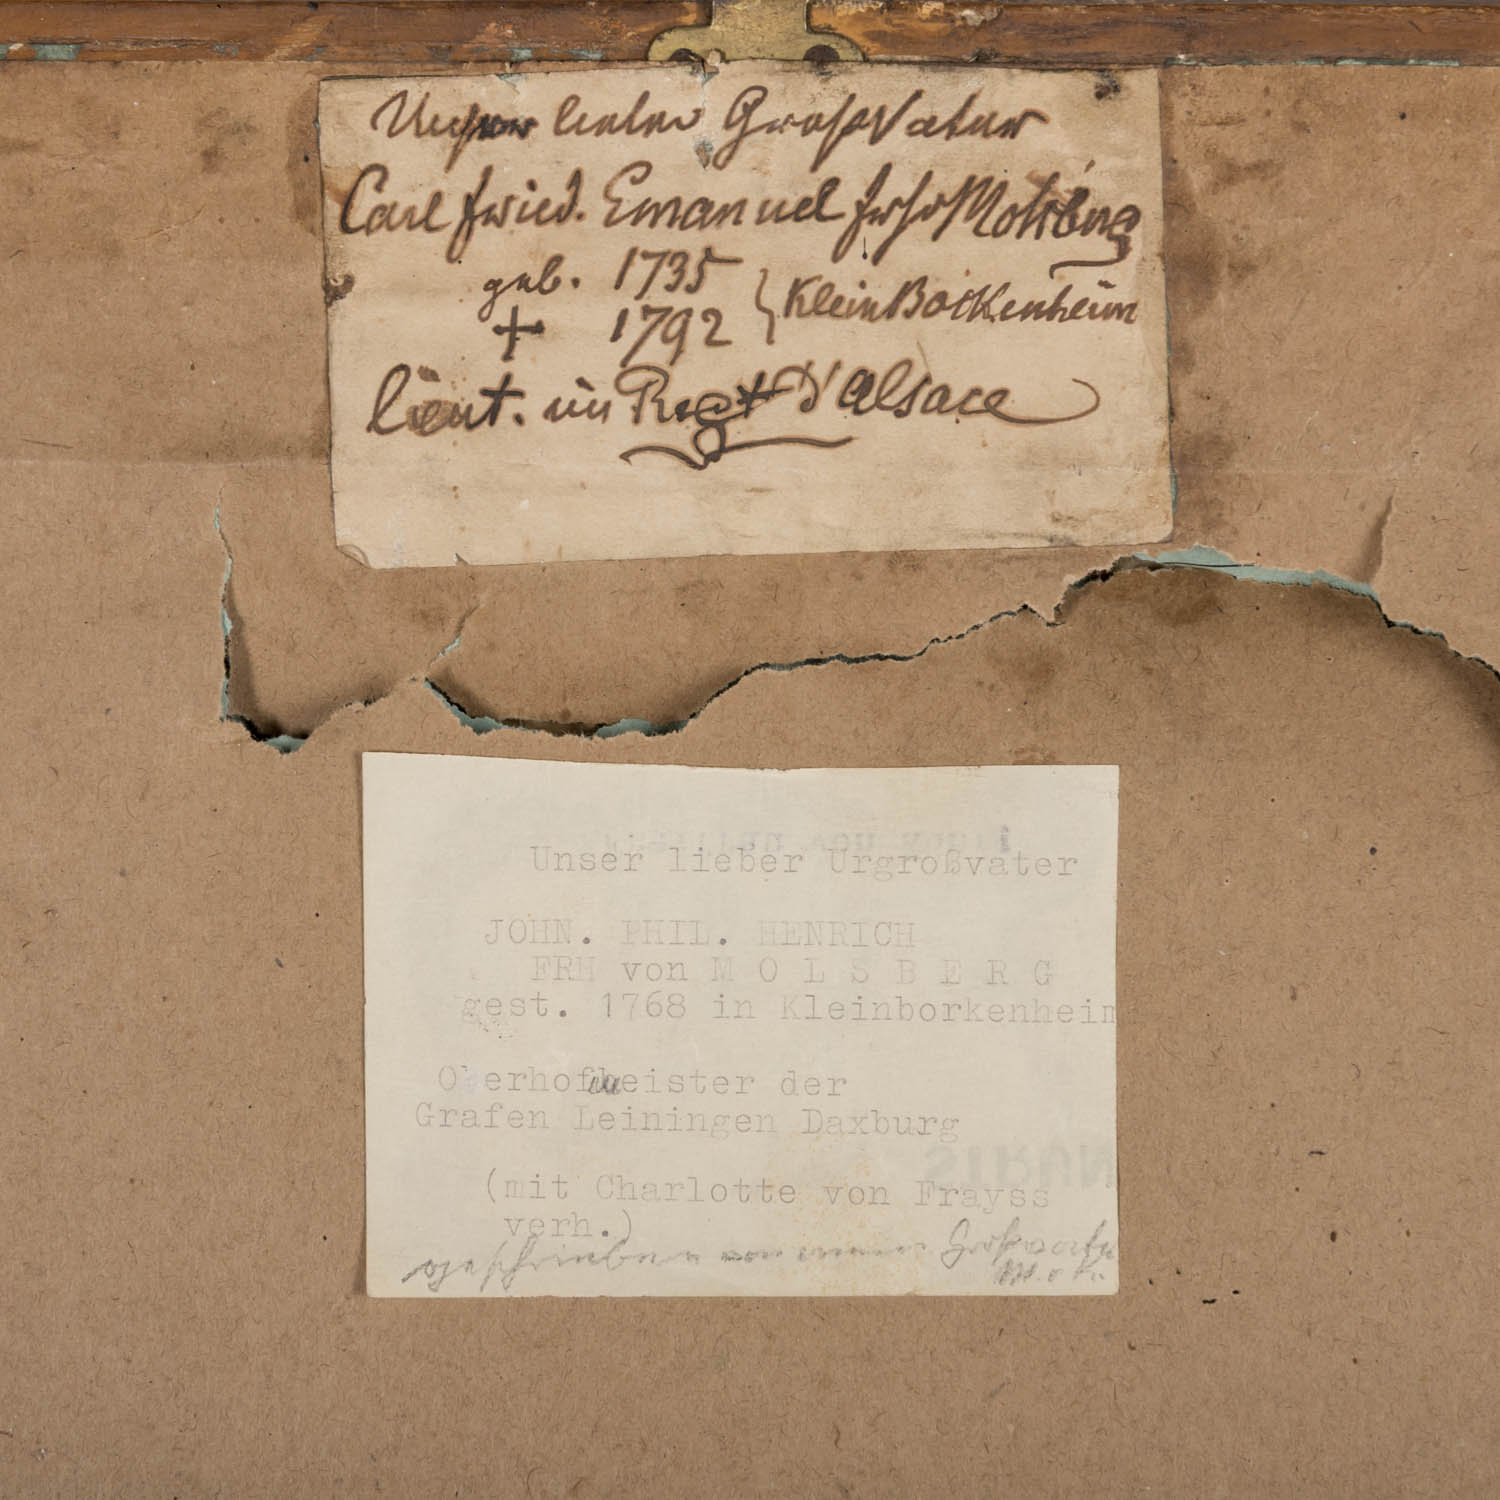 Unser lieber GroßVater
Carl Fried. Emanuel Frhr Molsberg
geb. 1735
+ 1792 } KleinBockenheim
lieut. im Regt D'Alsace
Unser lieber Urgroßvater
JOHN. PHIL. HENRICH
FRH von M O L S B E R G
gest. 1768 in Kleinborkenheim
Oberhofmeister der
Grafen Leiningen Daxburg
(mit Charlotte von Frayss
verh.)
geschrieben von meinem Großvater